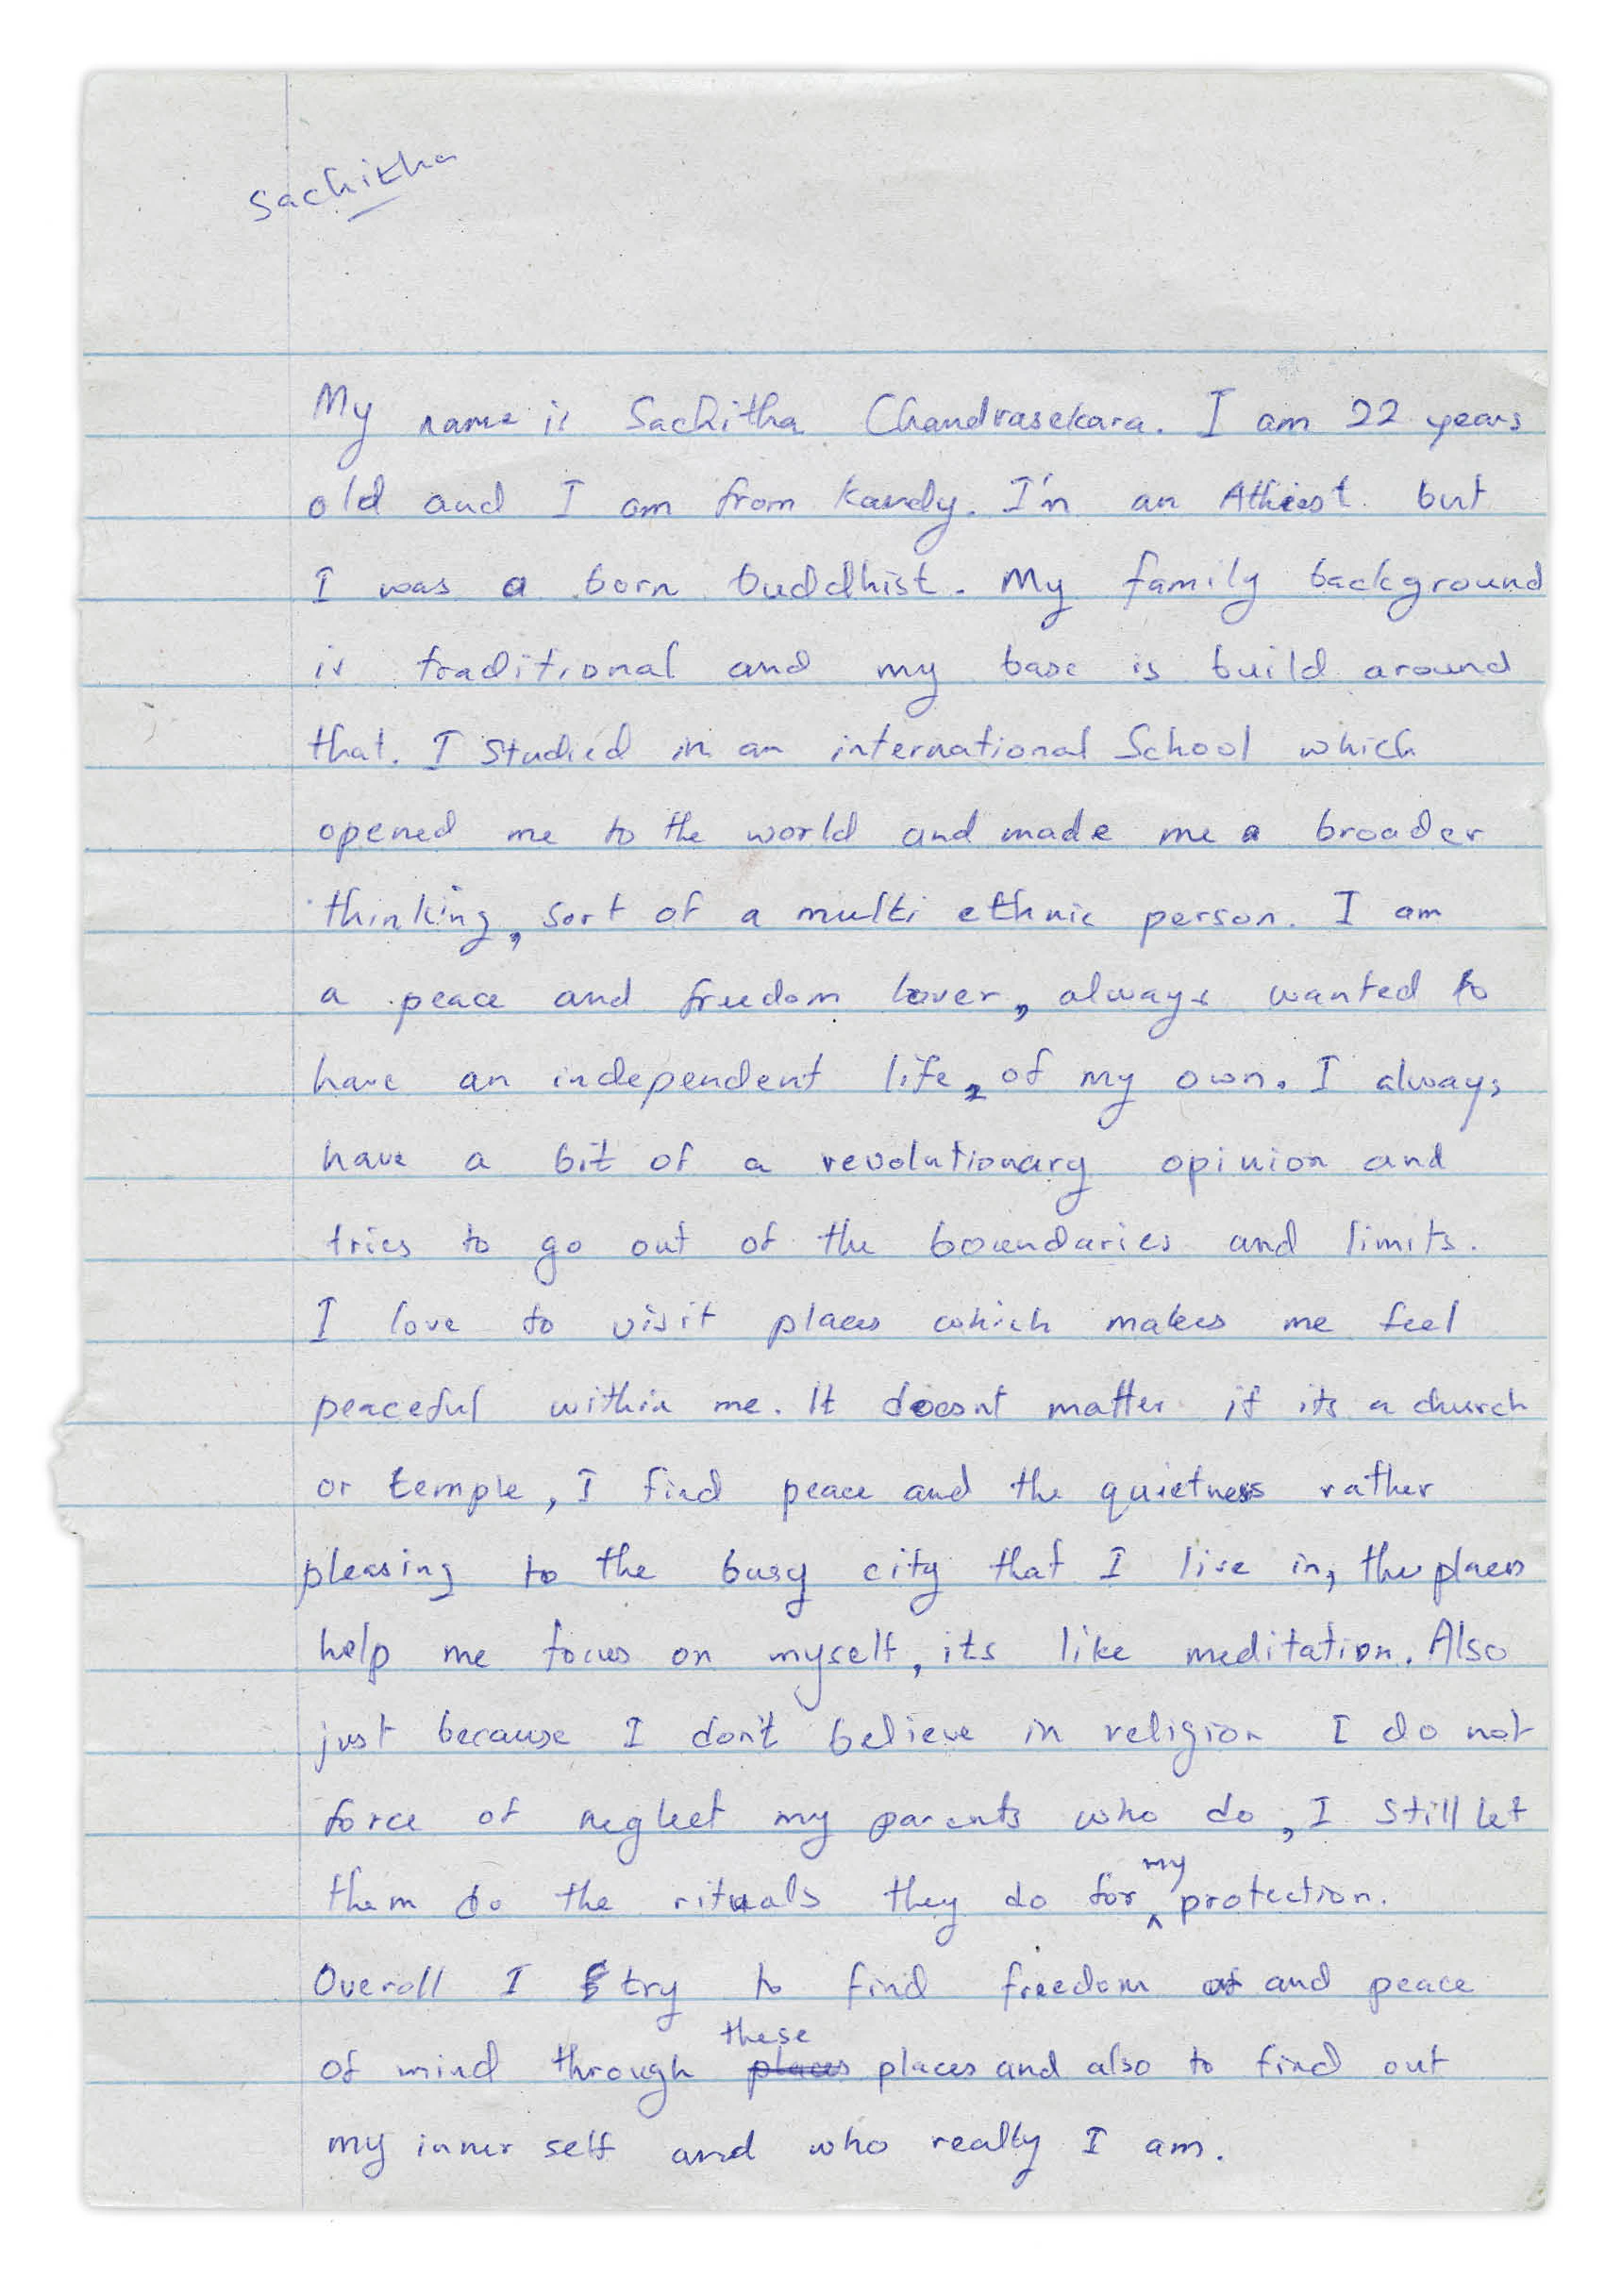 Sachitha
My name is Sachitha Chandrasekara. I am 22 years
old and I am from Kandy. I'm an Athiest but
I was a born buddhist. My family background
is traditional and my base is build around
that. I studied in an international School which
opened me to the world and made me a broader
thinking, sort of a multi ethnic person. I am
a peace and freedom lover, always wanted to
have an independent life, of my own. I always
have a bit of a revolutionary opinion and
tries to go out of the boundaries and limits.
I love to visit places which makes me feel
peaceful within me. It doesnt matter if its a church
or temple, I find peace and the quietness rather
pleasing to the busy city that I live in, the places
help me focus on myself, its like meditation. Also
just because I don't believe in religion I do not
force of neglect my parents who do, I still let
them do the rituals they do for my protection.
Overall I try to find freedom and peace
of mind through these places and also to find out
my inner self and who really I am.